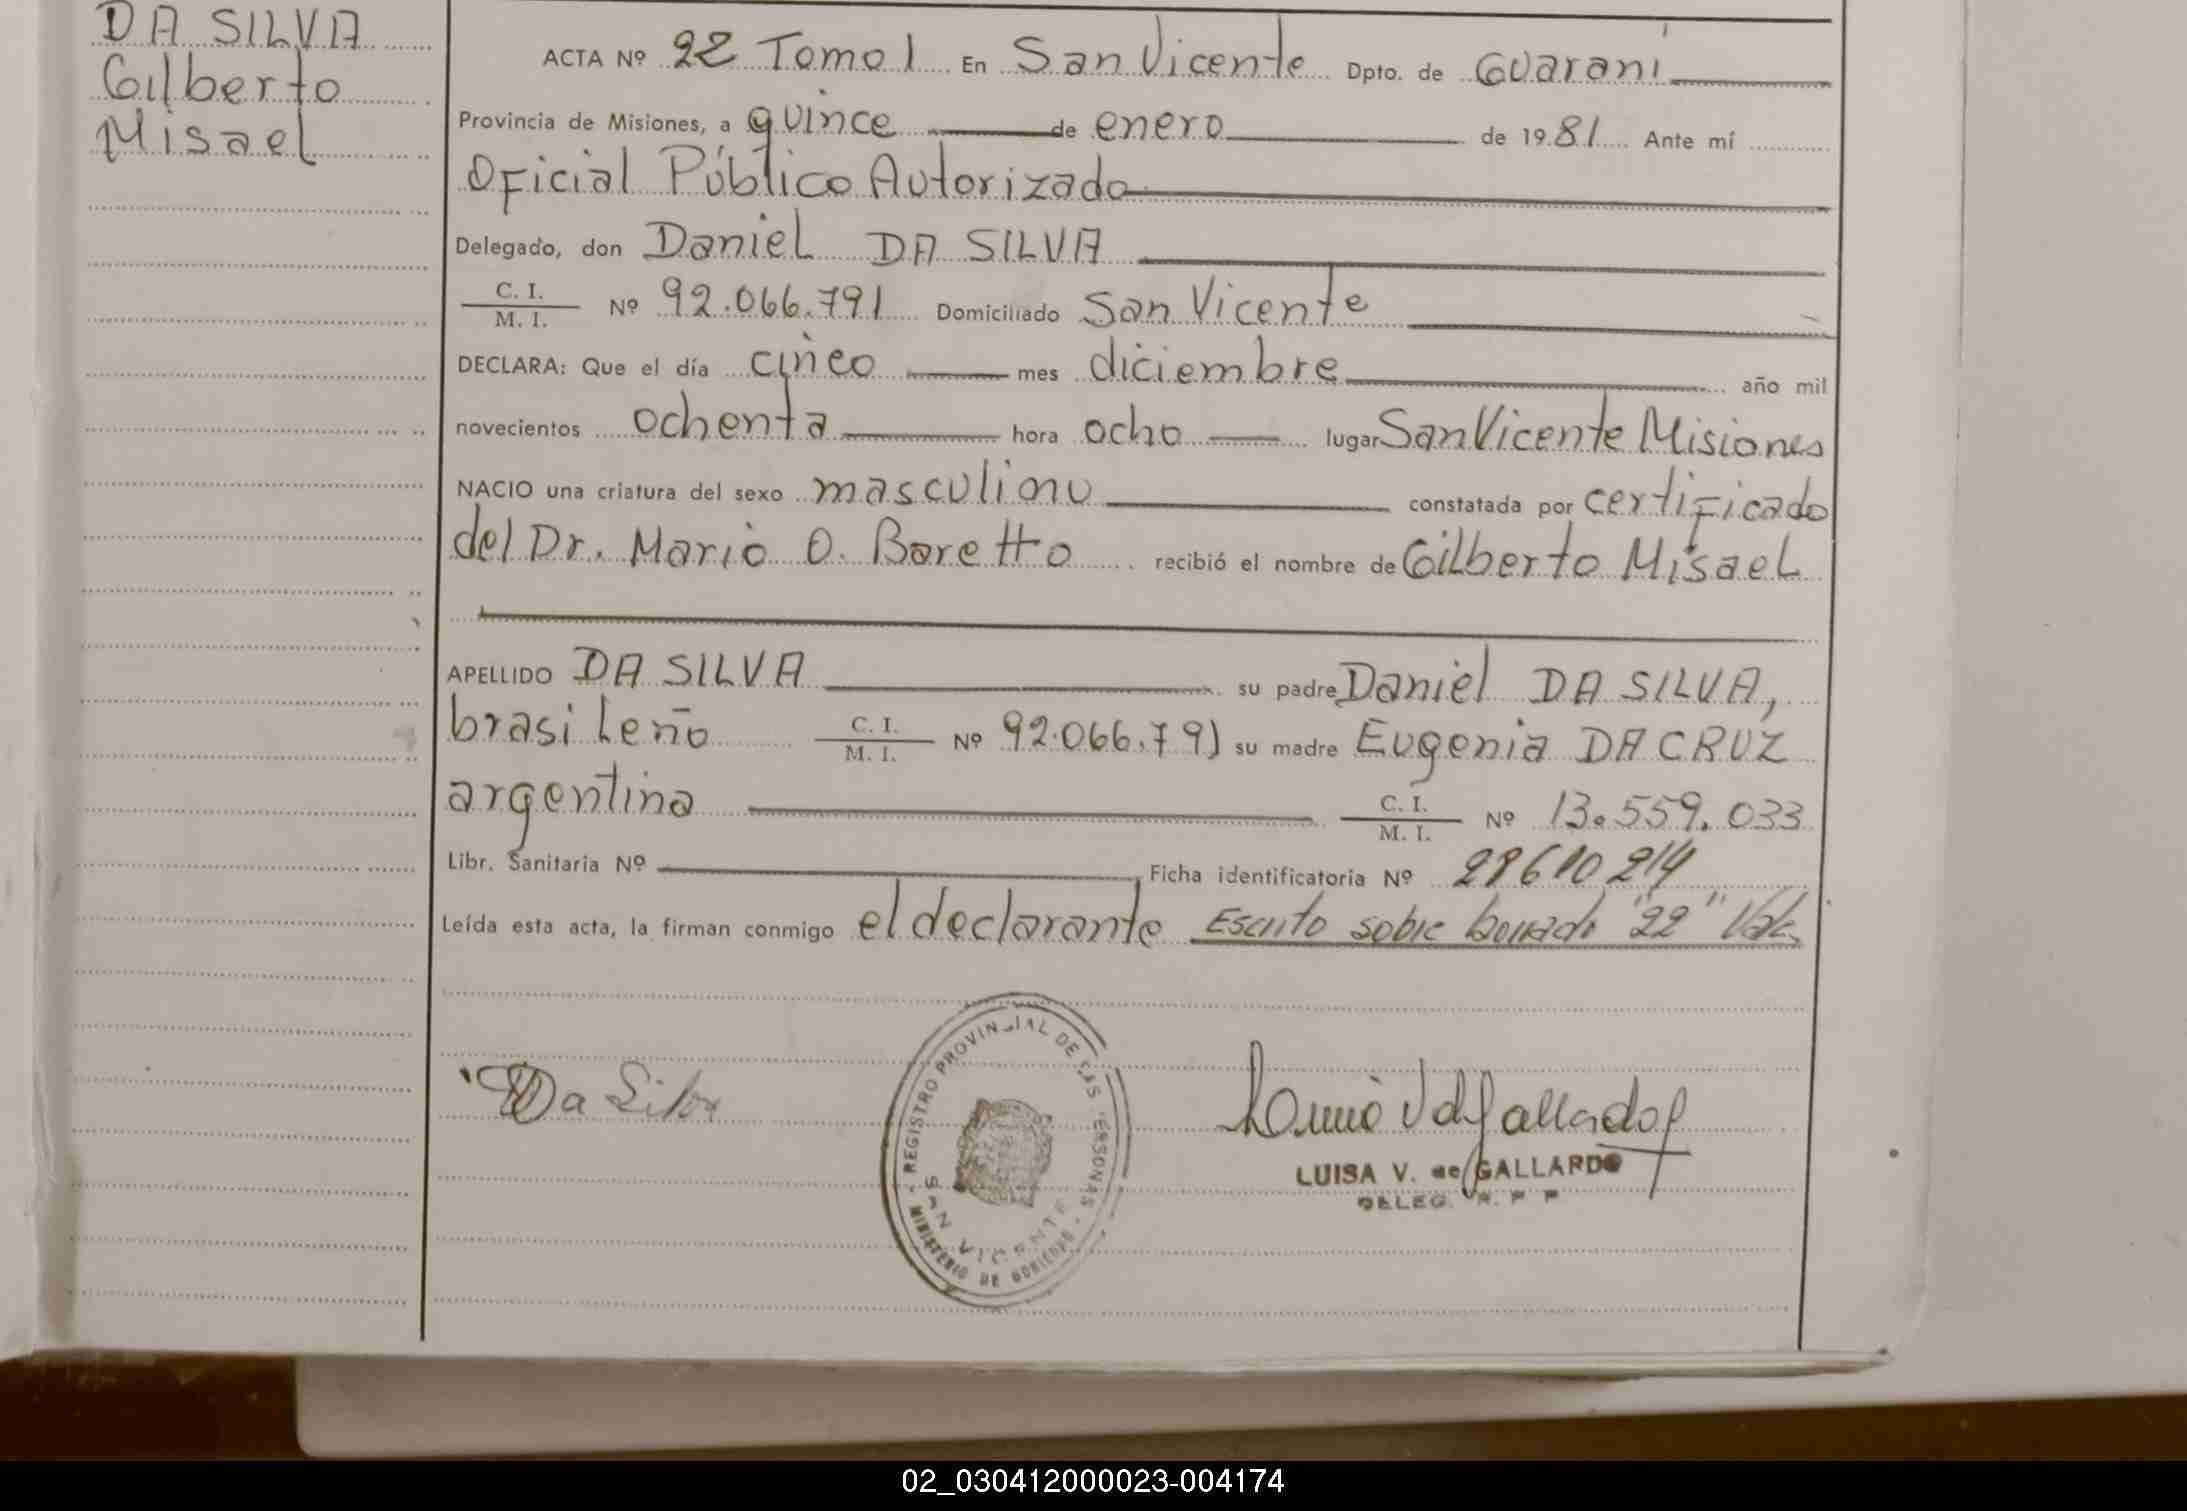 DA SILVA
Gilberto
Misael
ACTA Nº 22 Tomo 1 En San Vicente Dpto. de Guaraní
Provincia de Misiones, a quince de enero de 1981 Ante mí
Oficial Público Autorizado
Delegado, don Daniel DA SILVA
C. I.
M. I. Nº 92.066.791 Domiciliado San Vicente
DECLARA: Que el día cinco mes diciembre año mil
novecientos ochenta hora ocho lugar San Vicente Misiones
NACIO una criatura del sexo masculino constatada por certificado
del Dr. Mario O. Boretto recibió el nombre de Gilberto Misael
APELLIDO DA SILVA su padre Daniel DA SILVA,
brasileño C. I. M. I. Nº 92.066.791 su madre Eugenia DA CRUZ
argentina C. I. M. I. Nº 13.559.033
Libr. Sanitaria Nº Ficha identificatoria Nº 28610214
Leída esta acta, la firman conmigo el declarante Escrito sobre borrado "22" Vale
Da Silva
REGISTRO PROVINCIAL DE LAS PERSONAS
SAN VICENTE
MINISTERIO DE GOBIERNO
LUISA V. de GALLARDO
DELEG. R. P. P
02_030412000023-004174